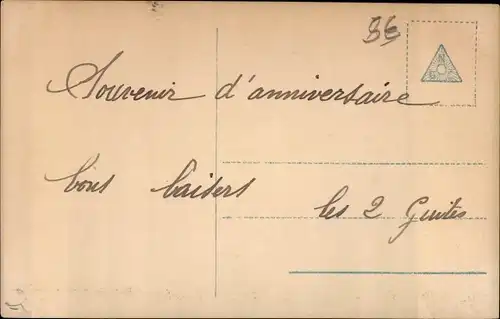 86
Souvenir d'anniversaire
bons baisers
les 2 Guites